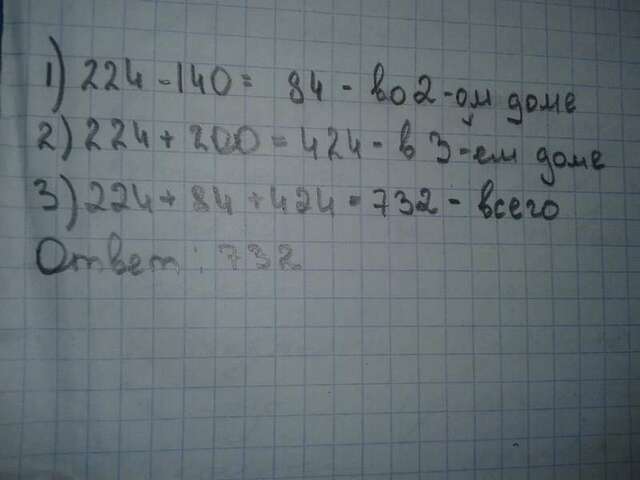 1) 224 - 140 = 84 - во 2-ом доме
2) 224 + 200 = 424 - в 3-ем доме
3) 224 + 84 + 424 = 732 - всего
Ответ : 732